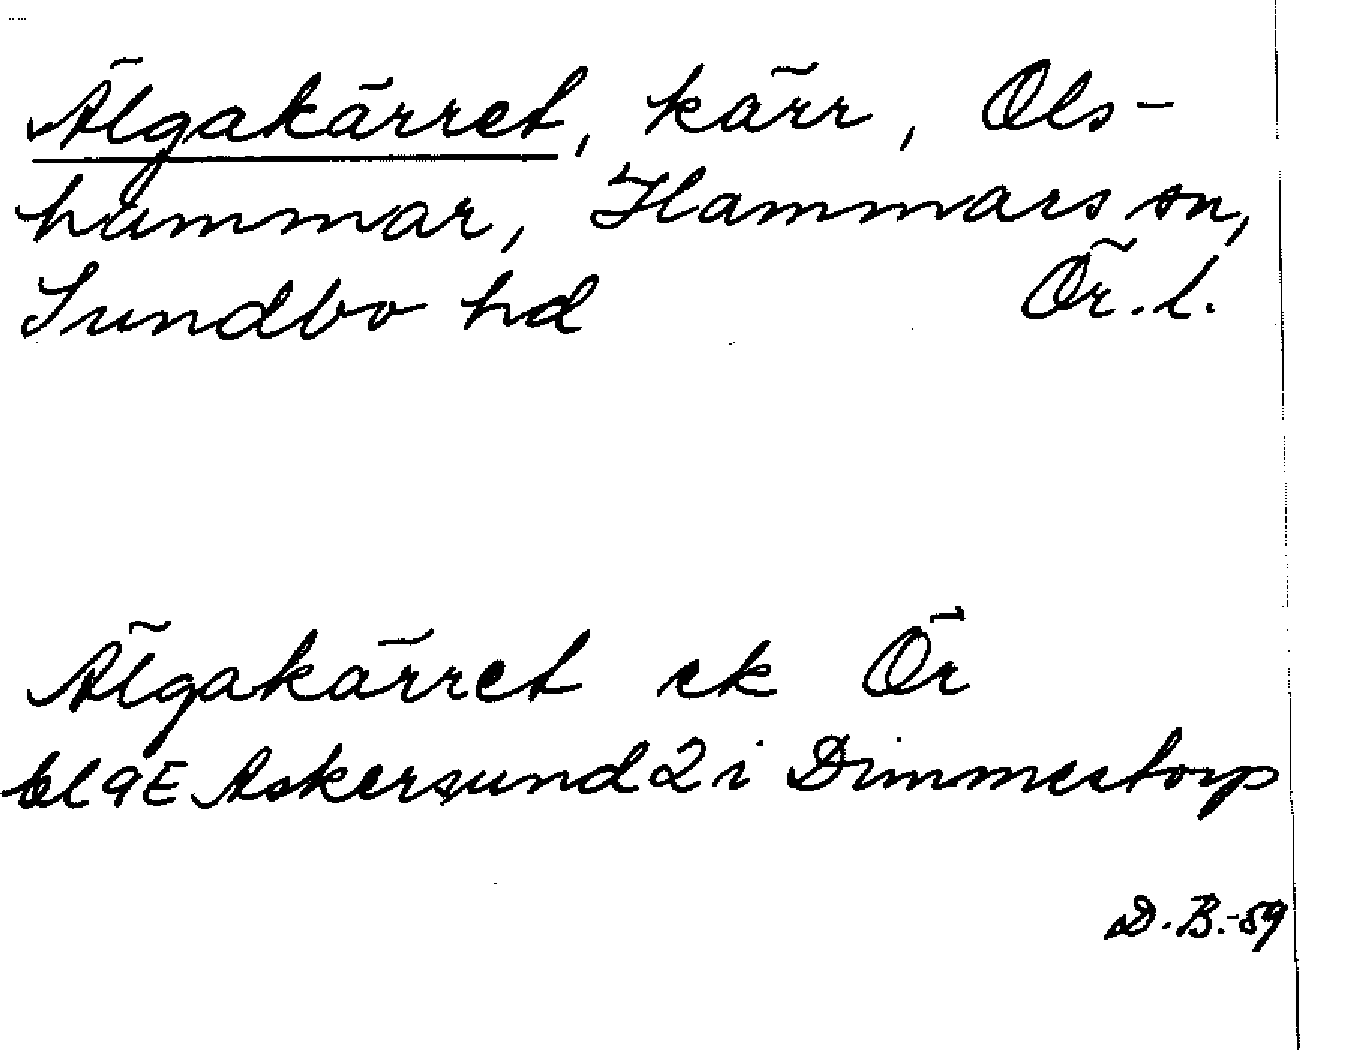 Älgakärret, kärr, Ols-
hummar, Hammars sn,
Sundbo hd Ör. l.
Älgakärret ek Ör
bl 9E Askersund 2 i Dimmestorp
D. B.-59